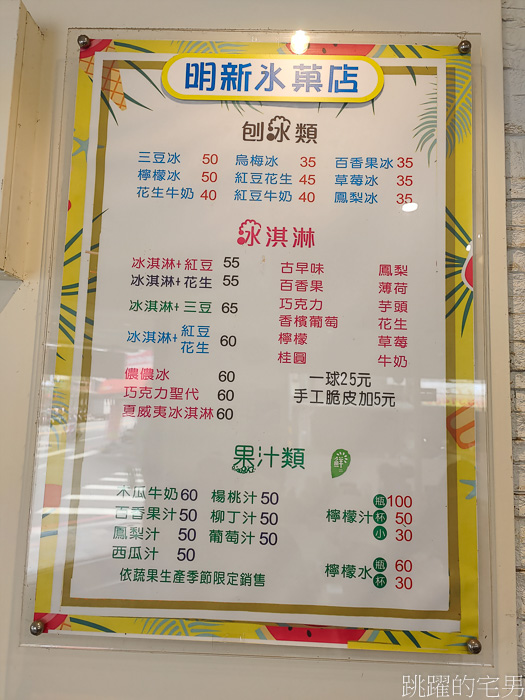 明新氷菓店
刨冰類
三豆冰 50 烏梅冰 35 百香果冰 35
檸檬冰 50 紅豆花生 45 草莓冰 35
花生牛奶 40 紅豆牛奶 40 鳳梨冰 35
冰淇淋
冰淇淋+紅豆 55
冰淇淋+花生 55
冰淇淋+三豆 65
冰淇淋+紅豆花生 60
儂儂冰 60
巧克力聖代 60
夏威夷冰淇淋 60
古早味 鳳梨
百香果 薄荷
巧克力 芋頭
香檳葡萄 花生
檸檬 草莓
桂圓 牛奶
一球25元
手工脆皮加5元
果汁類 鮮
木瓜牛奶 60 楊桃汁 50
百香果汁 50 柳丁汁 50
鳳梨汁 50 葡萄汁 50
西瓜汁 50
依蔬果生產季節限定銷售
檸檬汁 瓶 100
杯 50
小 30
檸檬水 瓶 60
杯 30
跳躍的宅男